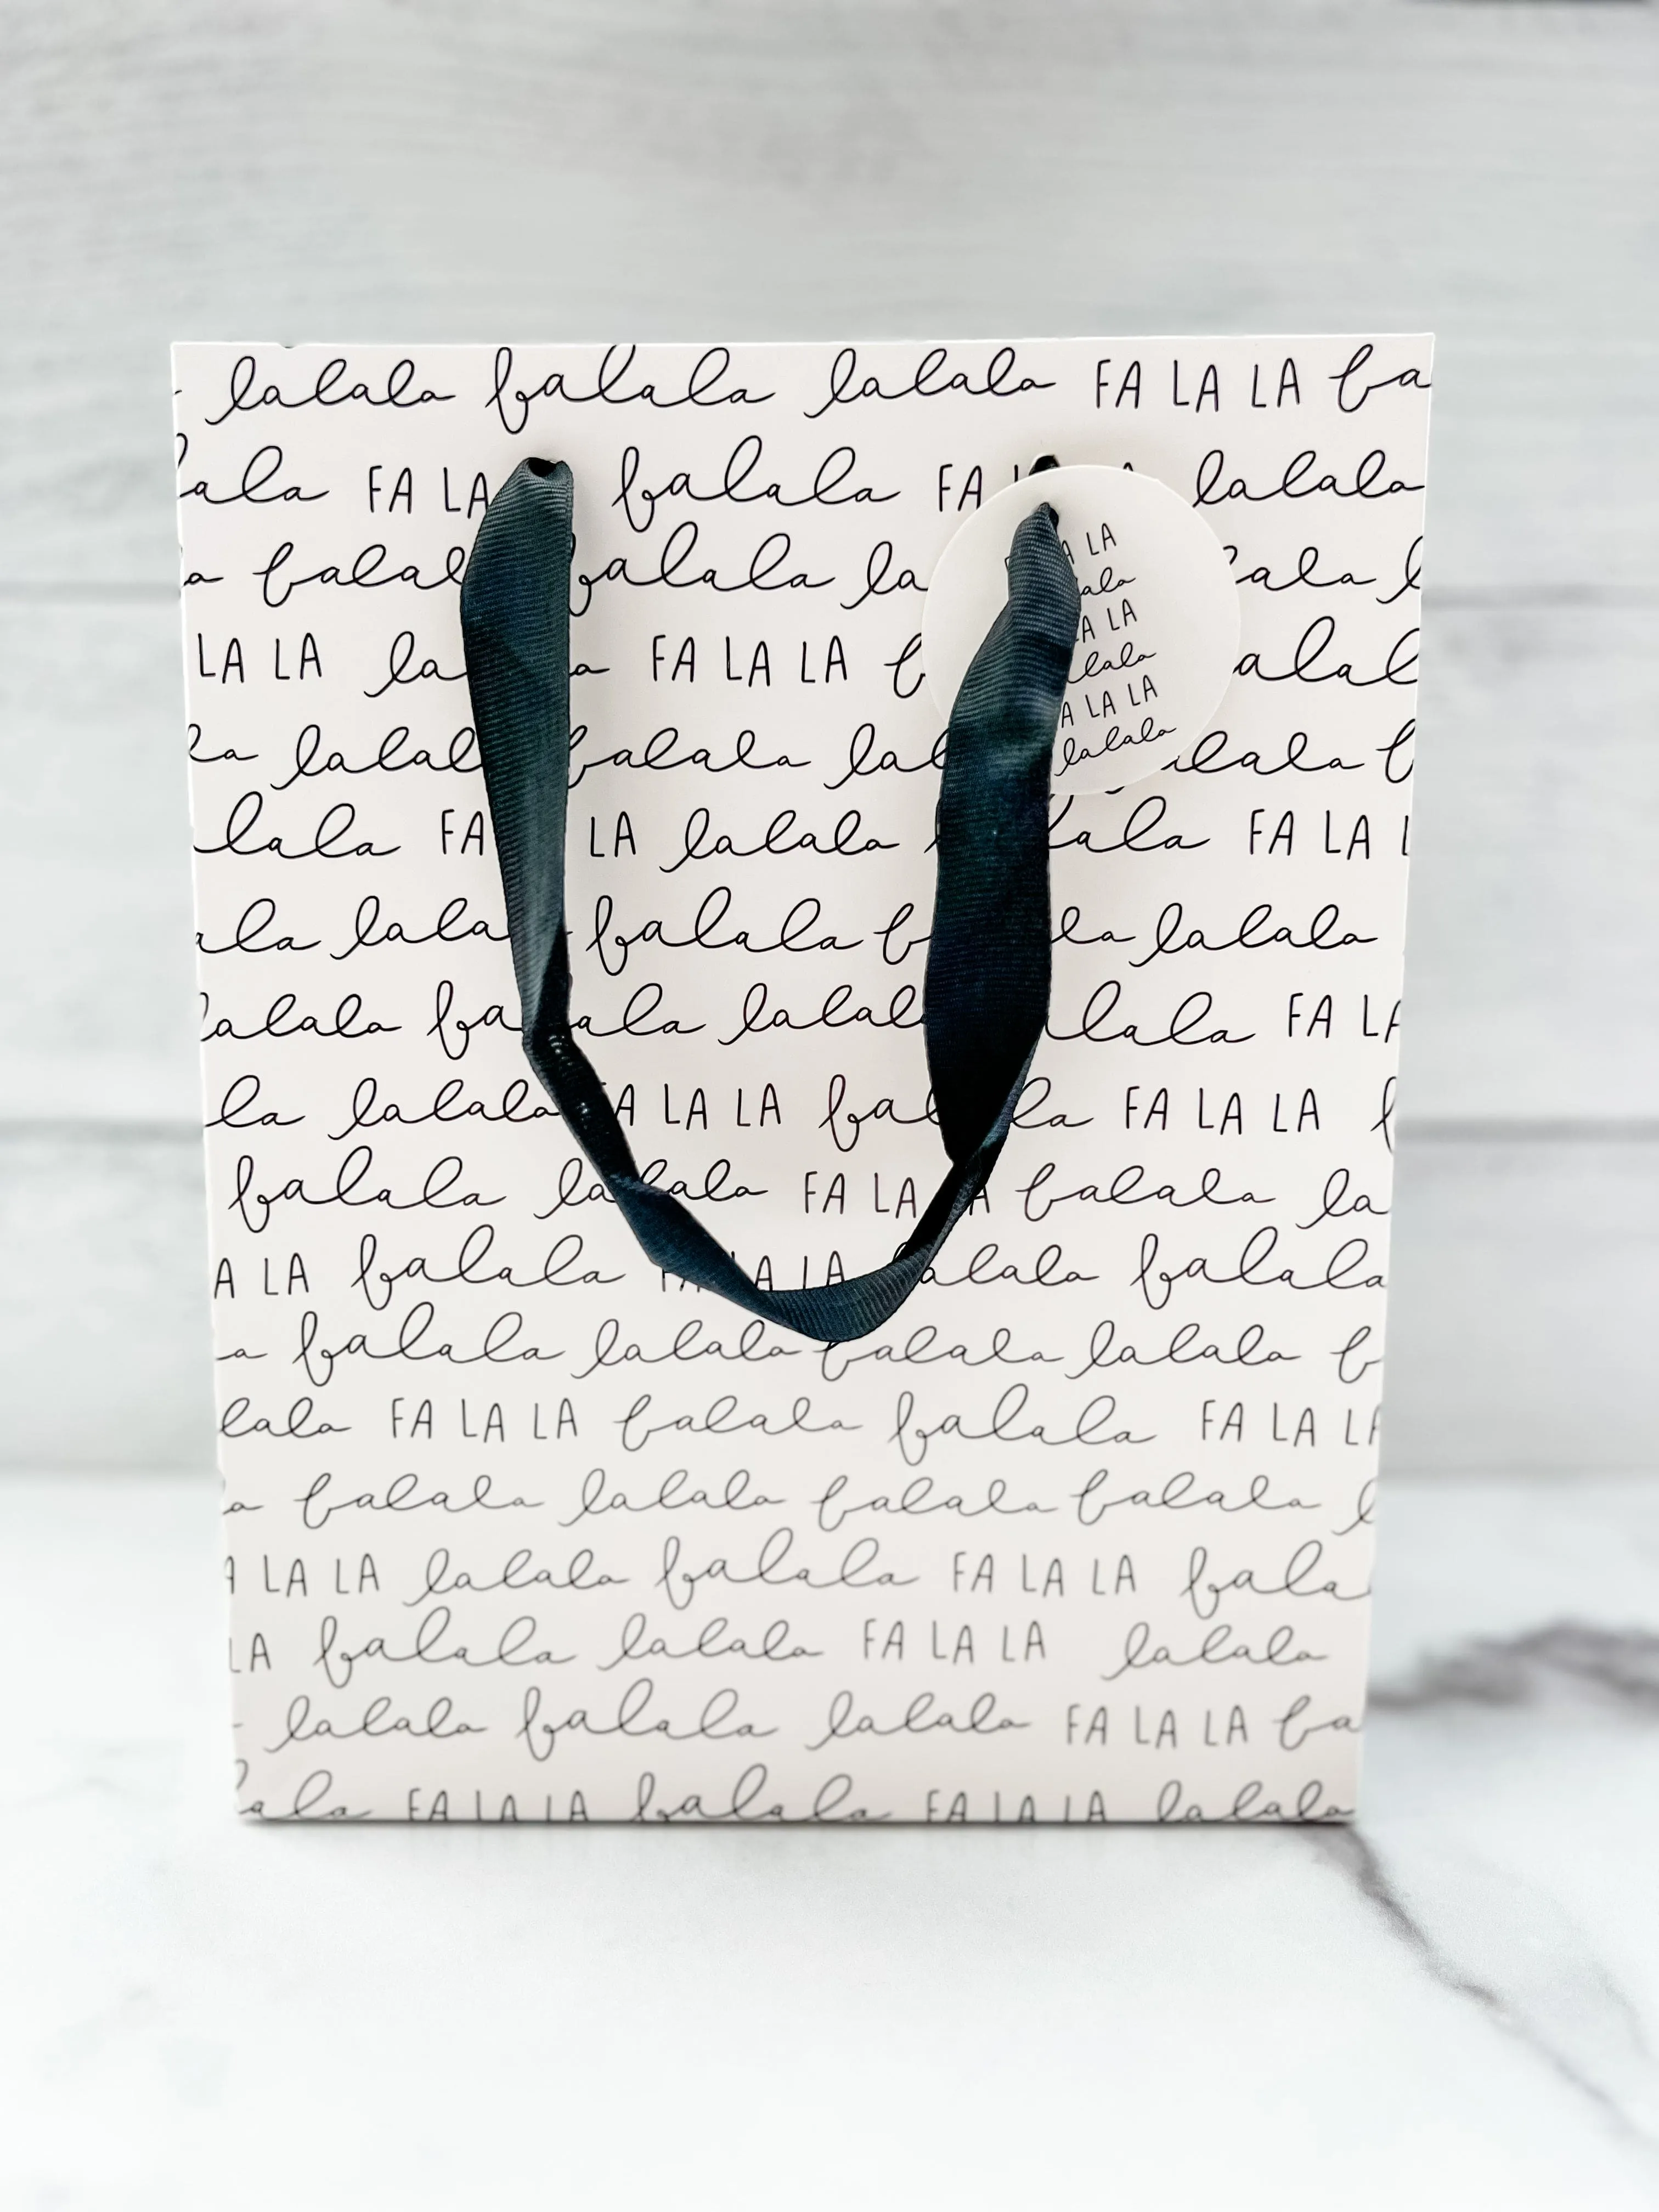 lalala falala lalala FA LA LA fa
ala FA LA falala FA lalala
falal falala la ala
LA LA la FA LA LA alal
la lalal falala lal lala
lala FA LA lalala lala FA LA
ala lala falala la lalala
lalala fa ala lalal lala FA LA
la lalala A LA LA fal la FA LA LA
falala la lala FA LA A falala la
A LA falala A LA alala falala
a falala lalala falala lalala f
lala FA LA LA falala falala FA LA LA
a falala lalala falala falala
A LA LA lalala falala FA LA LA fala
LA falala lalala FA LA LA lalala
lalala falala lalala FA LA LA fa
ala FA LA LA falala FA LA LA lalala
A LA
ala
A LA
lala
A LA LA
lalala